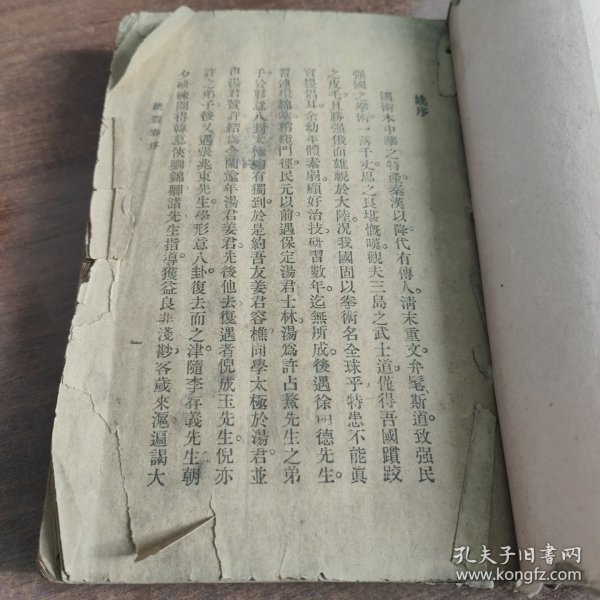 姚序
國術本中華之特產。秦漢以降。代有傳人。清末重文弁髦斯道。致强民
强國之拳術。一落千丈。思之良堪慨嘆。觀夫三島之武士道。僅得吾國蹟跤
之皮毛。且勝强俄而雄視於大陸。况我國固以拳術名全球乎。特患不能眞
實提倡耳。余幼年體素弱。顧好治技。研習數年。迄無所成。後遇徐明德先生。
習連環綿拳。稍窺門徑。民元以前。遇保定湯君士林。湯爲許占鰲先生之弟
子。於形意八卦太極。均有獨到。於是約吾友姜君容樵。同學太極於湯君。並
得湯君贊許。結爲金蘭。逾年湯君姜君。先後他去。復遇者倪成玉先生。倪亦
許之弟子。後又遇張兆東先生。學形意八卦。復去而之津。隨李存義先生。朝
夕研練。間得韓慕俠劉錦卿諸先生指導。獲益良非淺尠。客歲來滬。遍謁大
姚序
一
孔夫子旧书网
www.kongfz.com